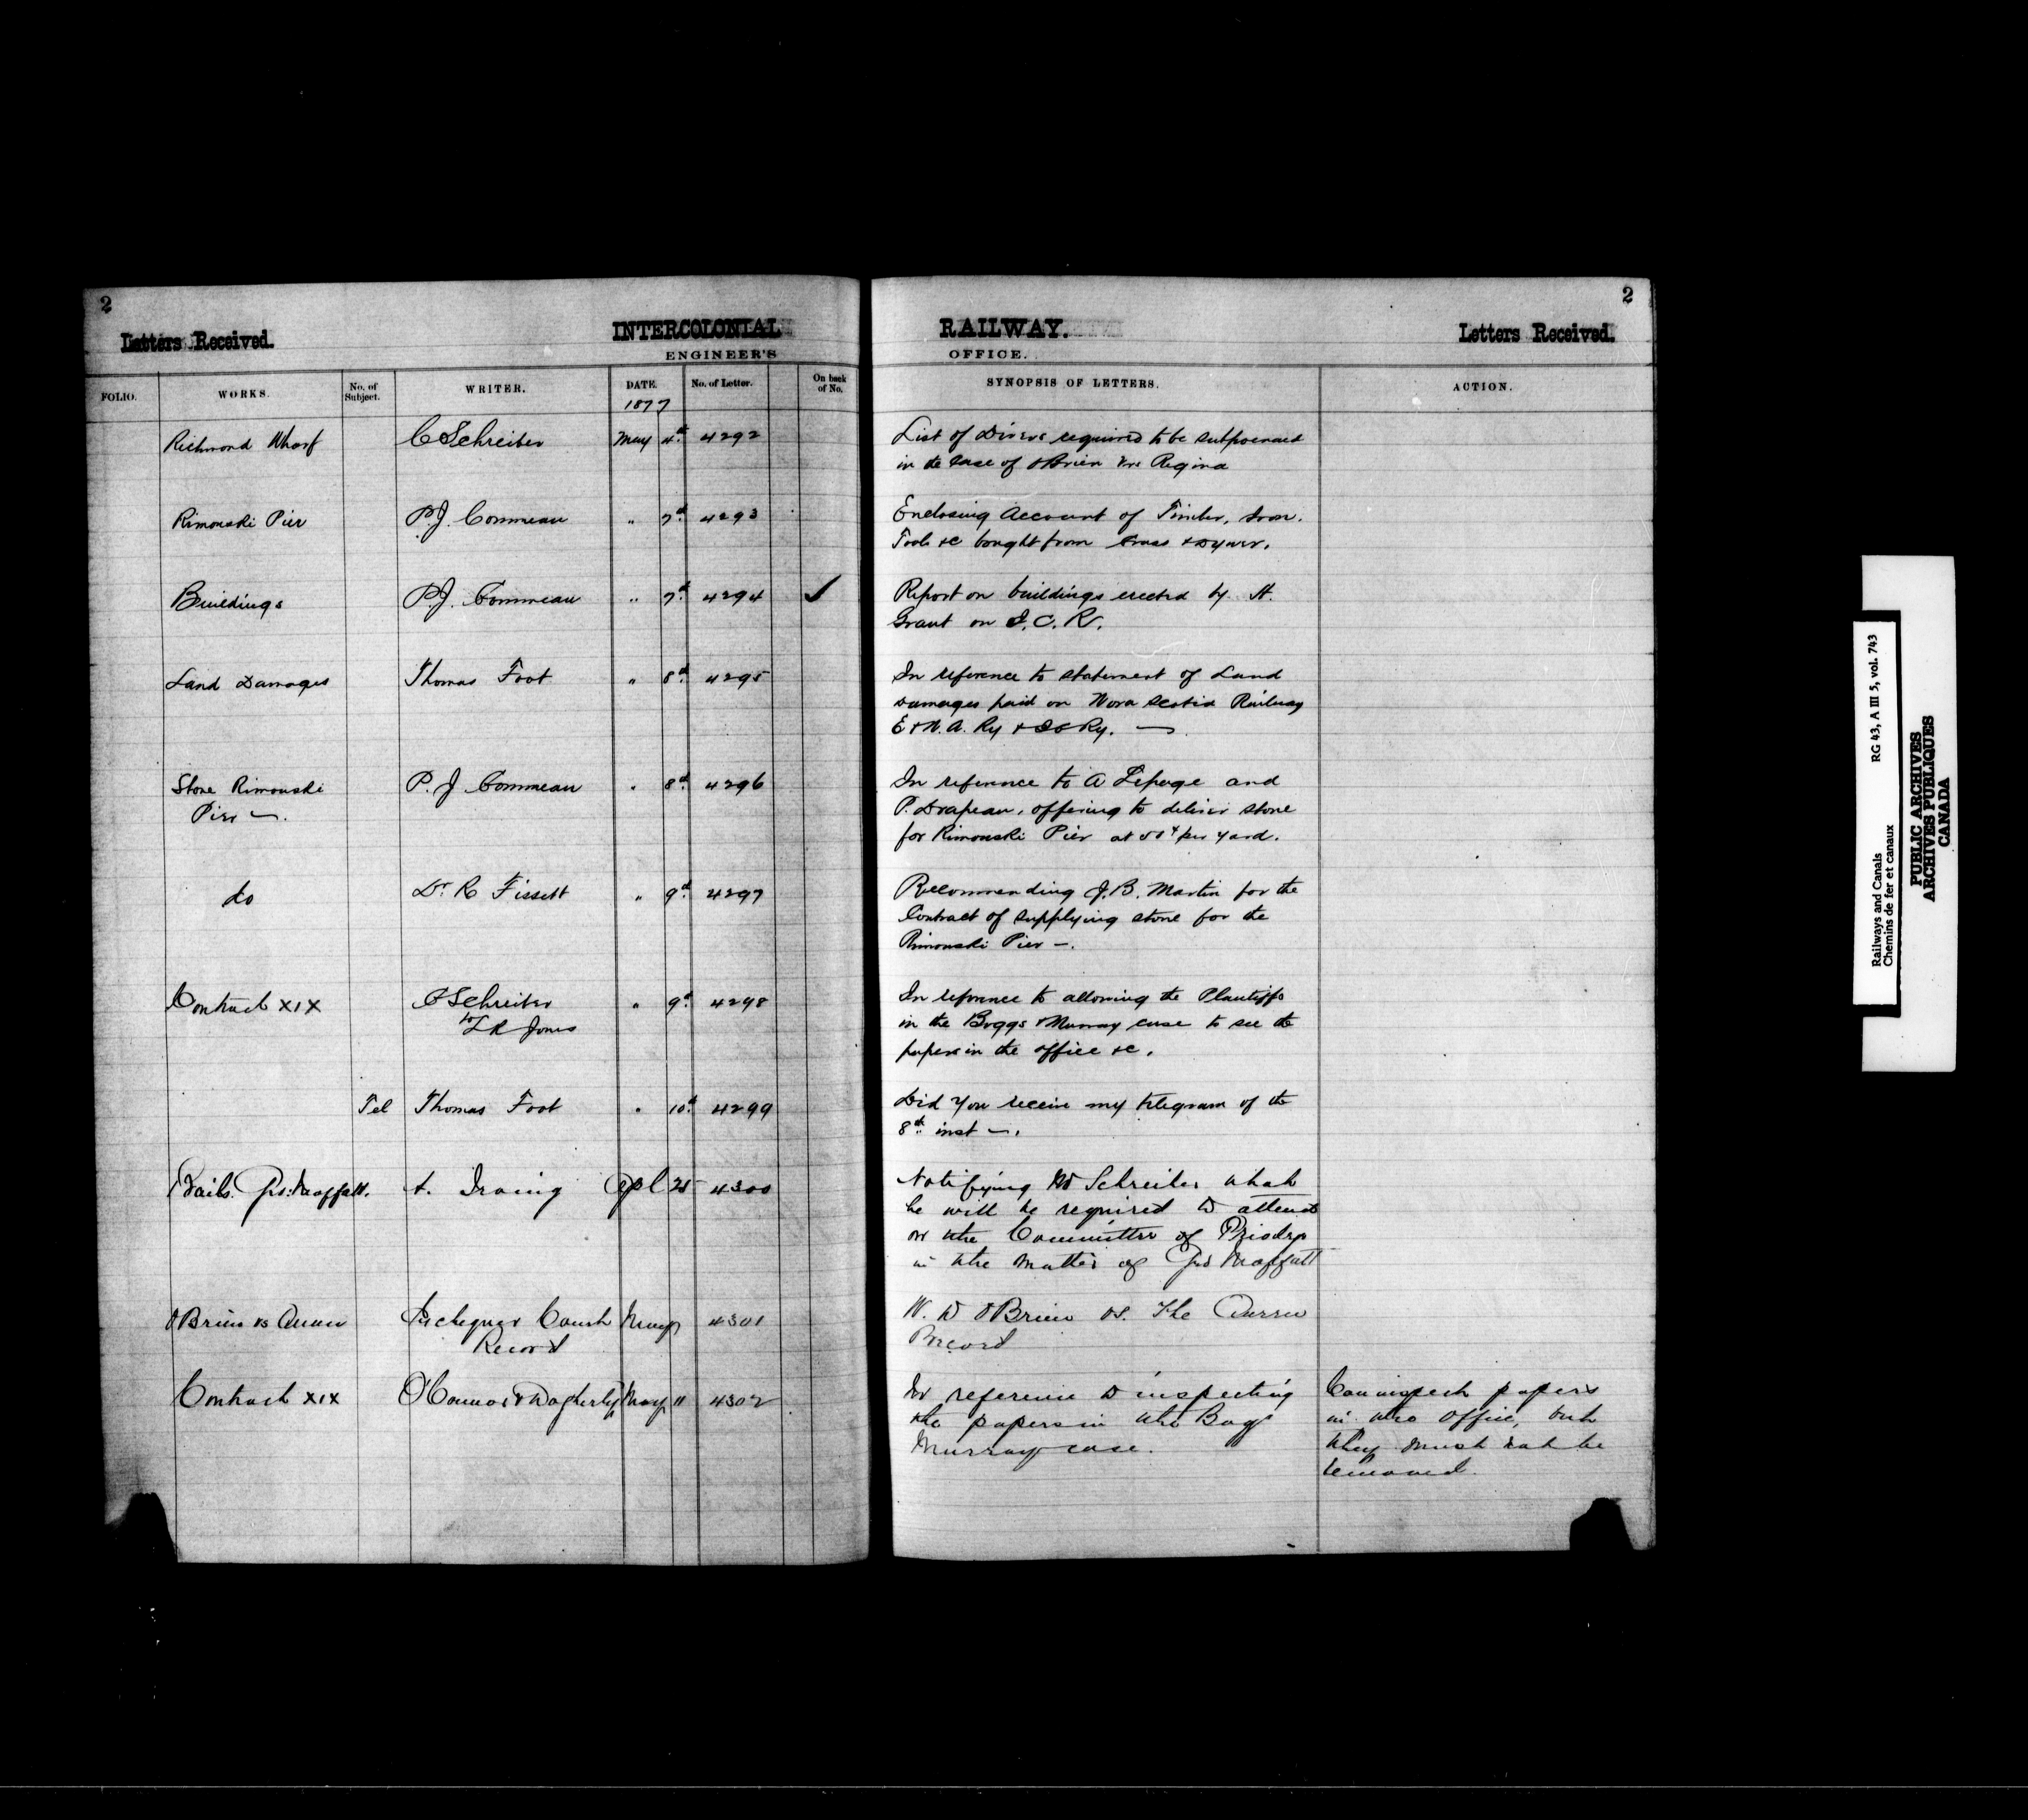 2
Letters Received.
INTERCOLONIAL
ENGINEER'S
RAILWAY.
OFFICE.
Letters Received.
2
FOLIO. WORKS. No. of Subject. WRITER. DATE. No. of Letter. On back of No. SYNOPSIS OF LETTERS. ACTION.
1877
Richmond Wharf C Schreiber May 4th 4292 List of Divers required to be subpoenaed
in the Case of OBrien vs Regina
Rimouski Pier P.J. Commeau " 7th 4293 Enclosing Account of Timber, Iron.
Tools &c bought from & Dwyer.
Buildings P.J. Commeau " 7th 4294 ✓ Report on buildings erected by A.
Grant on I.C.R.
Land Damages Thomas Foot " 8th 4295 In reference to statement of Land
Damages paid on Nova Scotia Railway
E & N.A. Ry & ICRy. —
Stone Rimouski P. J. Commeau " 8th 4296 In reference to A Lepage and
Pier —. P. Drapeau, offering to deliver stone
for Rimouski Pier at per yard.
do Dr. R Fissett " 9th 4297 Recommending J.B. Martin for the
Contract of supplying stone for the
Rimouski Pier —.
Contract XIX C Schreiber " 9th 4298 In reference to allowing the Plantiffs
to L K Jones in the Boggs & Murray case to see the
papers in the office &c.
Tel Thomas Foot " 10th 4299 Did you receive my telegram of the
8th inst —.
Rails. Moffatt. A. Irving Apl 25 4300 Notifying Mr Schreiber that
he will be required to attend
on the Committee of
in the matter of Moffatt
OBrien vs Queen Exchequer Court May 4301 W. D OBrien vs. The Queen
Record Record
Contract XIX O'Connor & Dogherty May 11 4302 In reference to inspecting Can inspect papers
the papers in the Bogs in the office, but
Murray case. they must not be
removed.
Railways and Canals RG 43, A III 5, vol. 743
Chemins de fer et canaux
PUBLIC ARCHIVES
ARCHIVES PUBLIQUES
CANADA